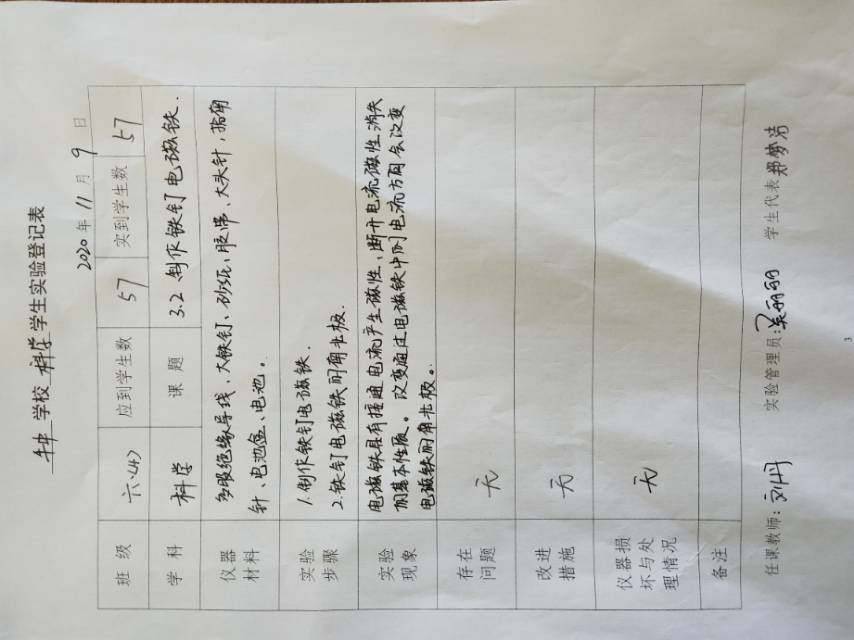 学校 科学 学生实验登记表
2020年11月9日
班级 六(4) 应到学生数 57 实到学生数 57
学科 科学 课题 3.2制作铁钉电磁铁.
仪器材料 多股绝缘导线、大铁钉、砂纸、胶带、大头针、指南
针、电池盒、电池。
实验步骤 1.制作铁钉电磁铁.
2.铁钉电磁铁的南北极.
实验现象 电磁铁具有接通电流产生磁性,断开电流磁性消失
的基本性质。改变通过电磁铁中的电流方向会改变
电磁铁的南北极。
存在问题 无
改进措施 无
仪器损坏与处理情况 无
备注
任课教师:刘丹 实验管理员:吴丽丽 学生代表 郑梦洁
3